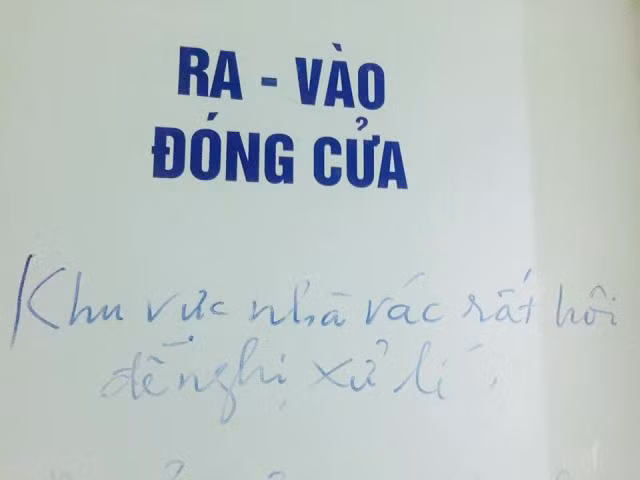 RA - VÀO
ĐÓNG CỬA
Khu vực nhà vác rất hôi
đề nghị xử lí.